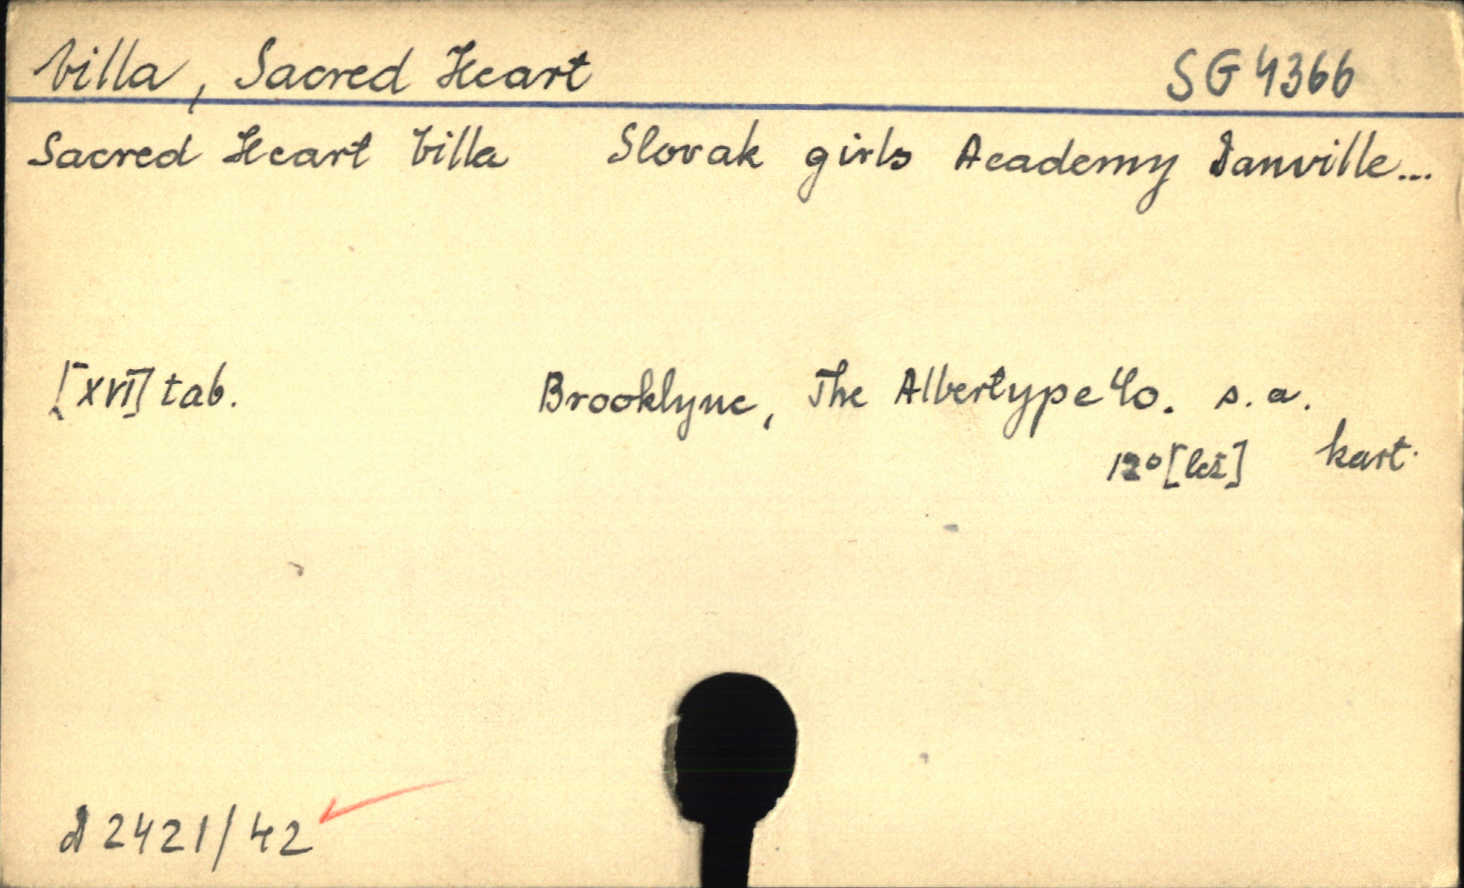 Villa, Sacred Heart SG 4366
Sacred Heart Villa Slovak girls Academy Danville...
[XVI] tab. Brooklyne, The Albertype Co. s. a.
12° [lež] kart.
D 2421/42